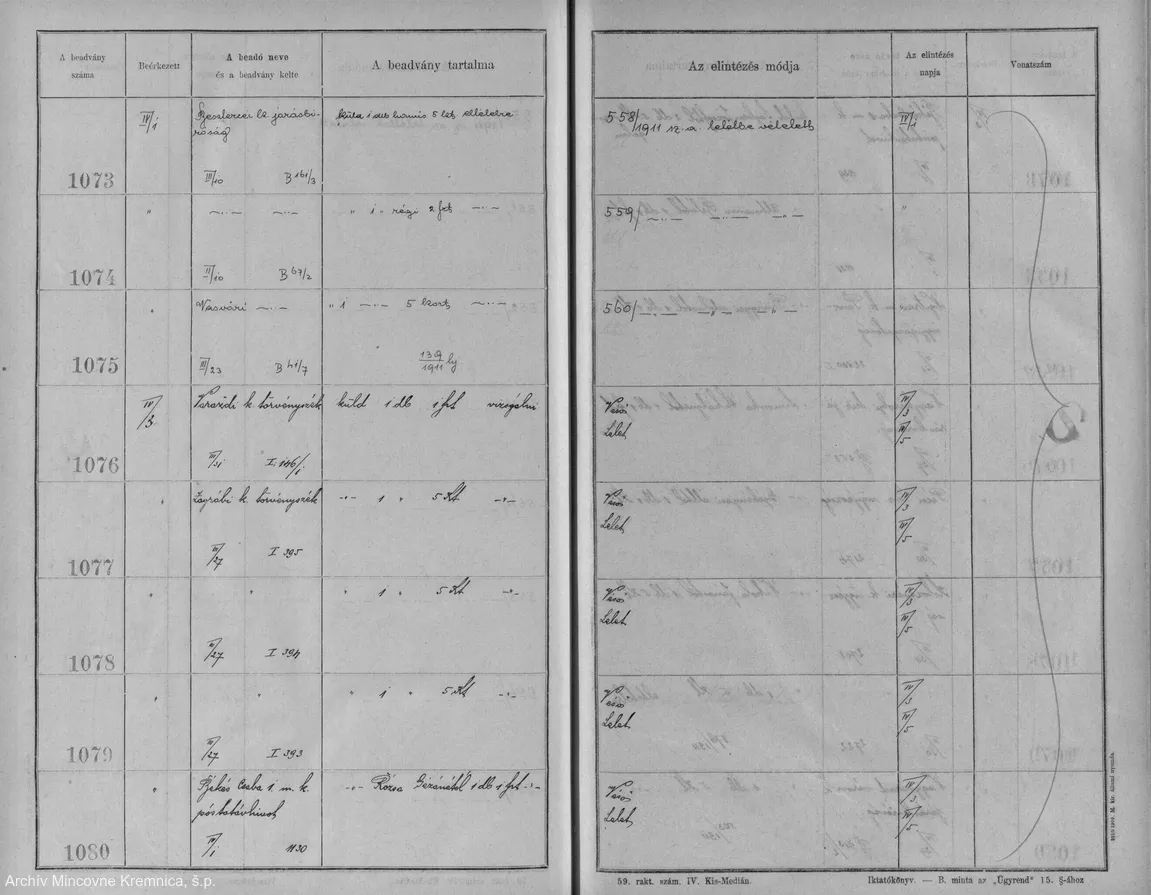 A beadvány
száma
Beérkezett
A beadó neve
és a beadvány kelte
A beadvány tartalma
Az elintézés módja
Az elintézés
napja
Vonatszám
1073
IV/1
Beszterczei k. járásbi-
róság
III/10 B 161/3
küld 1 db hamis 5 ft
558/1911 sz. a. leletbe vétetett
IV/1
1074
" —··— " 1 " régi 2 frt —··—
II/10 B 67/2
559/ —··—
"
1075
Vasvári —··— " 1 —··— 5 kort —··—
III/23 B 41/7
139/1911
560/ —··—
1076
IV/3
Varasdi k. törvényszék küld 1 db 1 frt vizsgálni
III/31 I. 146/1
Lelet
IV/3
IV/5
1077
"
Zágrábi k. törvényszék —"— 1 " 5 Kt —"—
III/27 I 395
Lelet
IV/3
IV/5
1078
" " " 1 " 5 Kt —"—
III/27 I 394
Lelet
IV/3
IV/5
1079
" " " 1 " 5 Kt —"—
III/27 I 393
Lelet
IV/3
IV/5
1080
"
Békés Csaba 1 m. k.
póstatávhivot
IV/1 1130
—"— Rózsa Gézánétól 1 db 1 frt —"—
Lelet
IV/3
IV/5
59. rakt. szám. IV. Kis-Medián.
Iktatókönyv. — B. minta az „Ügyrend" 15. §-ához
Archív Mincovne Kremnica, š.p.